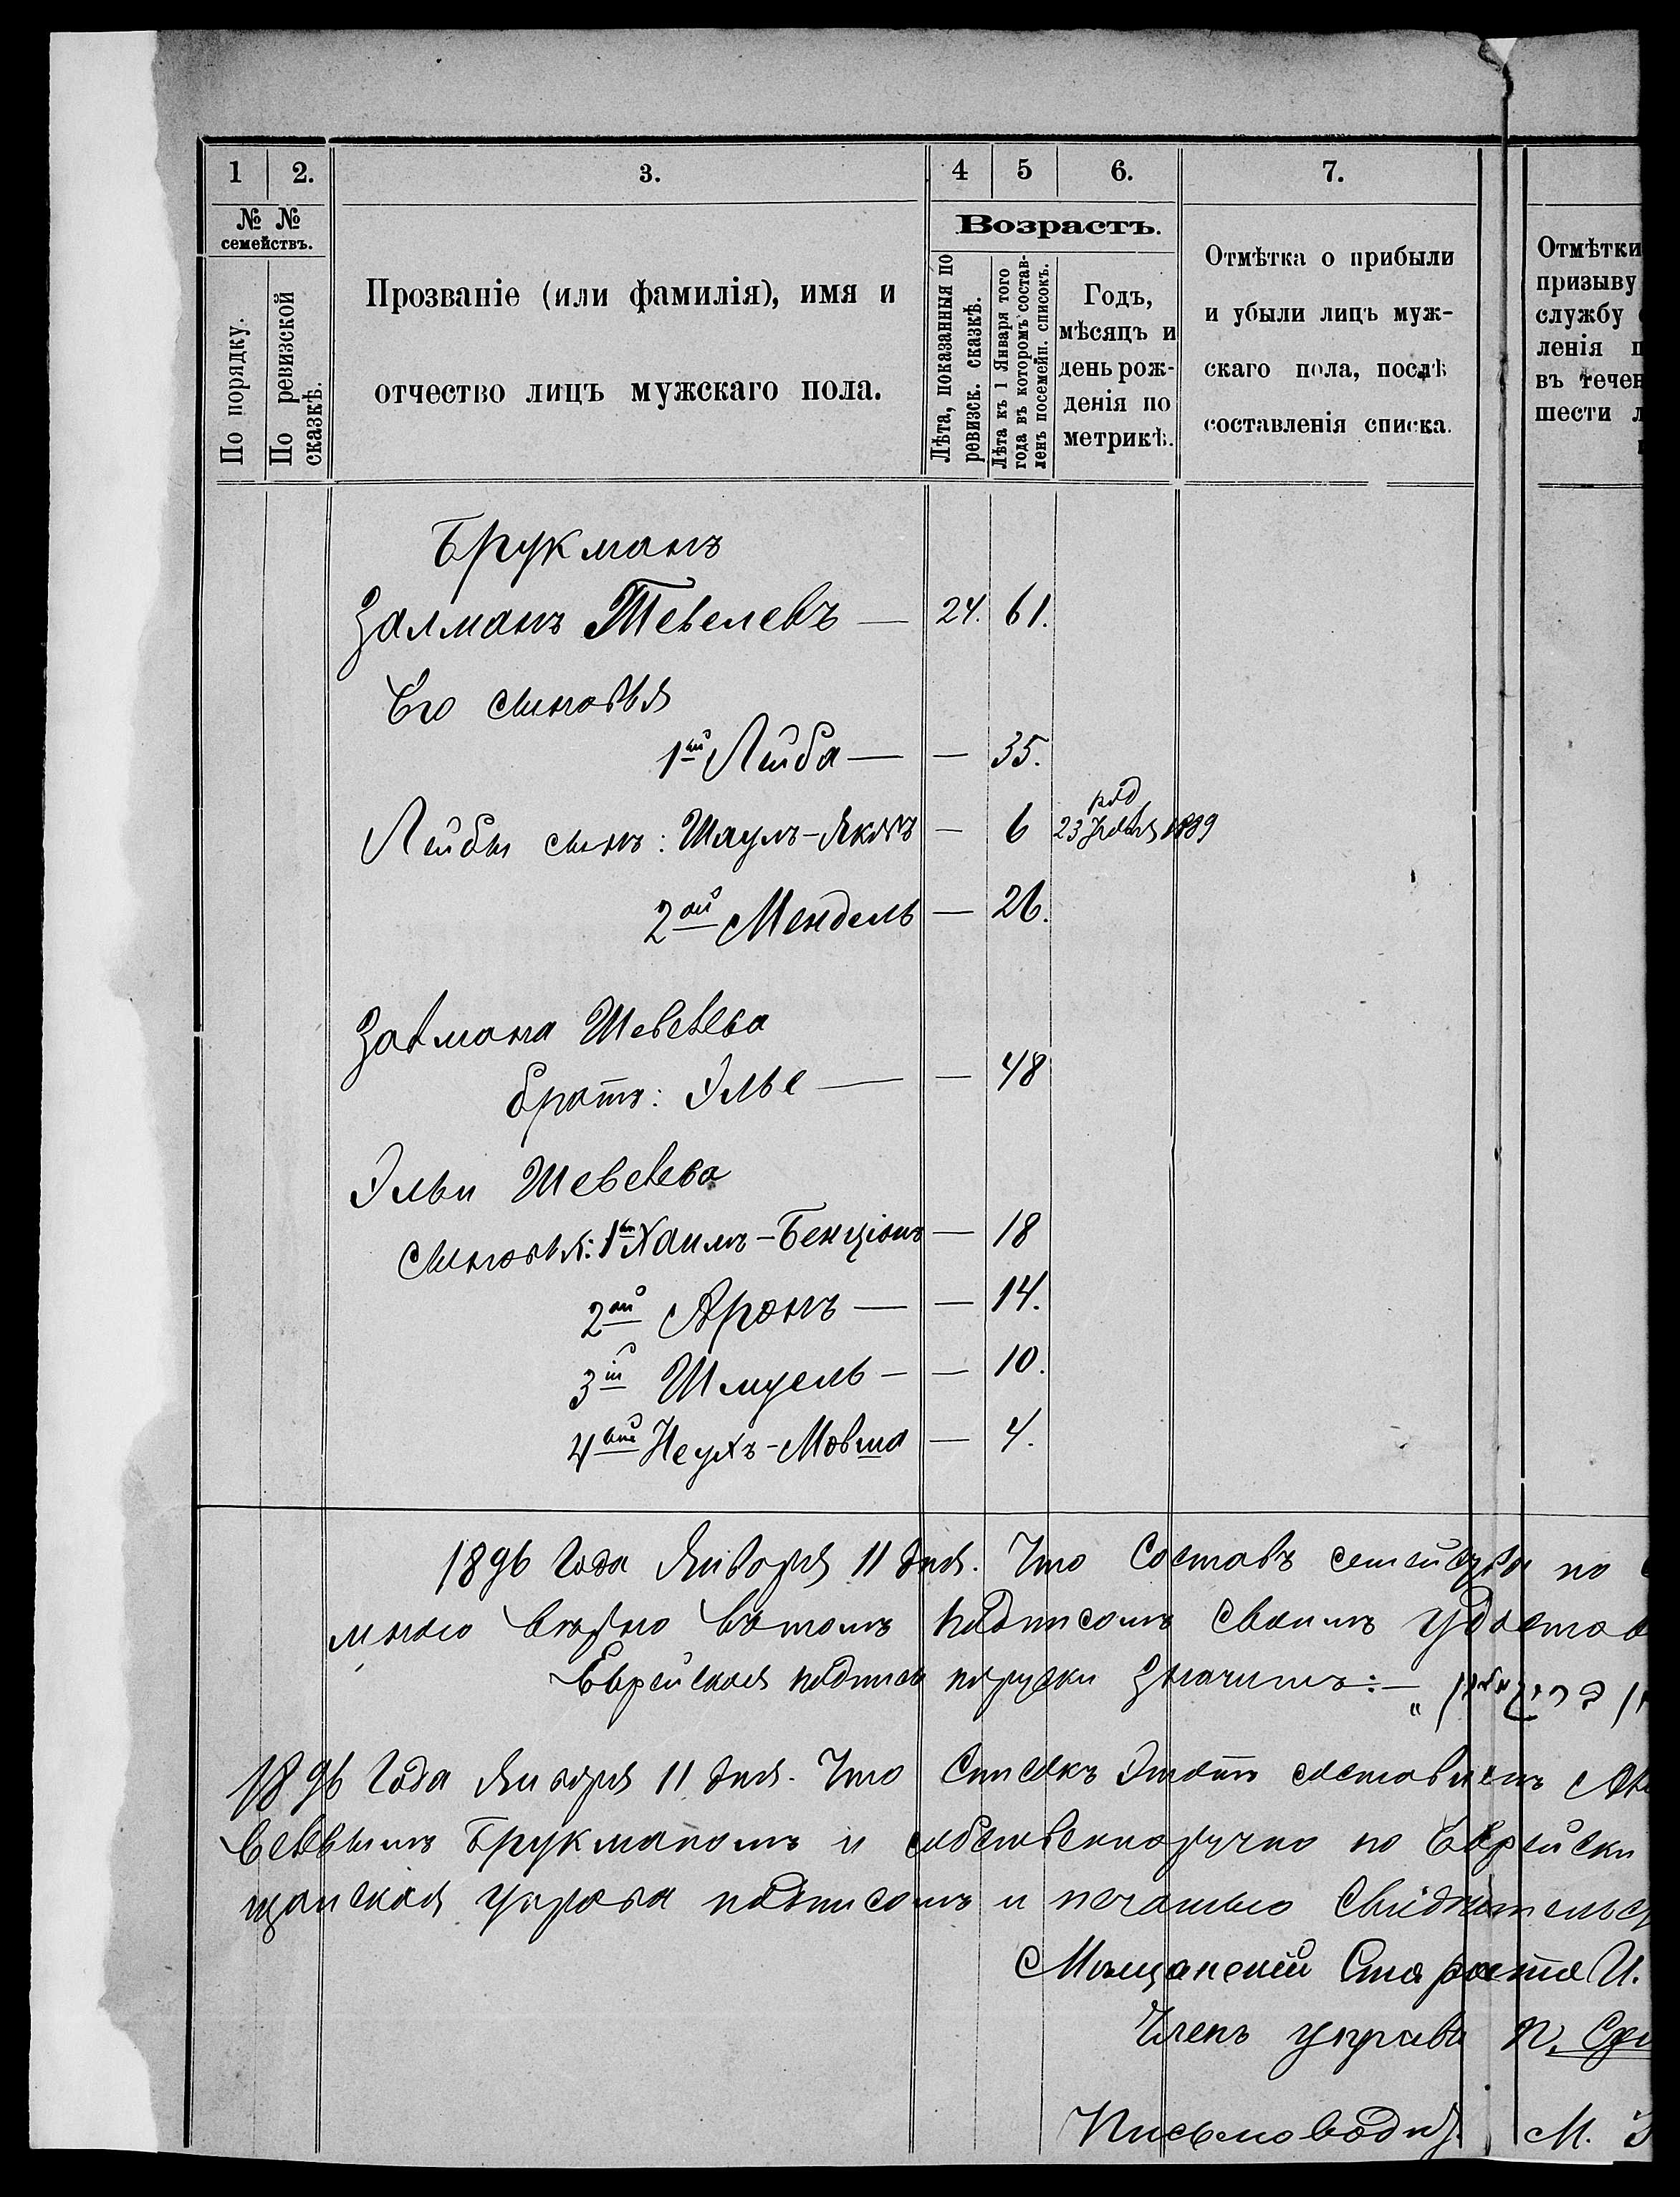 1 2. 3. 4 5 6. 7.
№ № семействъ.
По порядку.
По ревизской сказкѣ.
Прозваніе (или фамилія), имя и
отчество лицъ мужскаго пола.
Возрастъ.
Лѣта, показанныя по
ревизск. сказкѣ.
Лѣта къ 1 Января того
года въ которомъ состав-
ленъ посемейн. списокъ.
Годъ,
мѣсяцъ и
день рож-
денія по
метрикѣ.
Отмѣтка о прибыли
и убыли лицъ муж-
скаго пола, послѣ
составленія списка.
Отмѣтки
призыву
службу
ленія п
въ течен
шести л
Брукманъ
Залманъ Тевелевъ — 24. 61.
Его сыновья
1ый Лейба — — 35.
род
Лейбы сынъ: Шаулъ-Яковъ — 6 23 1889
2ой Мендель — 26.
Залмана Шевелева
братъ: Элье — — 48
Эльи Шевелева
Сыновья: 1ый Хаимъ-Бенціонъ — 18
2ой Аронъ — — 14.
3ій Шмуель — — 10.
4ый Неухъ-Мовша — 4.
1896 Года Января 11 дня. Что Составъ семейства по
мною вѣрно въ томъ подписомъ своимъ Удостов
Еврейская подпись порусски значитъ: — „
1896 Года Января 11 дня. Что Списокъ Этотъ составленъ
велевымъ Брукманомъ и собственноручно по Еврейски
щанская Управа подписомъ и печатью Свидѣтельст
Мѣщанскій Староста И.
Членъ управы
Письмоводит. М.